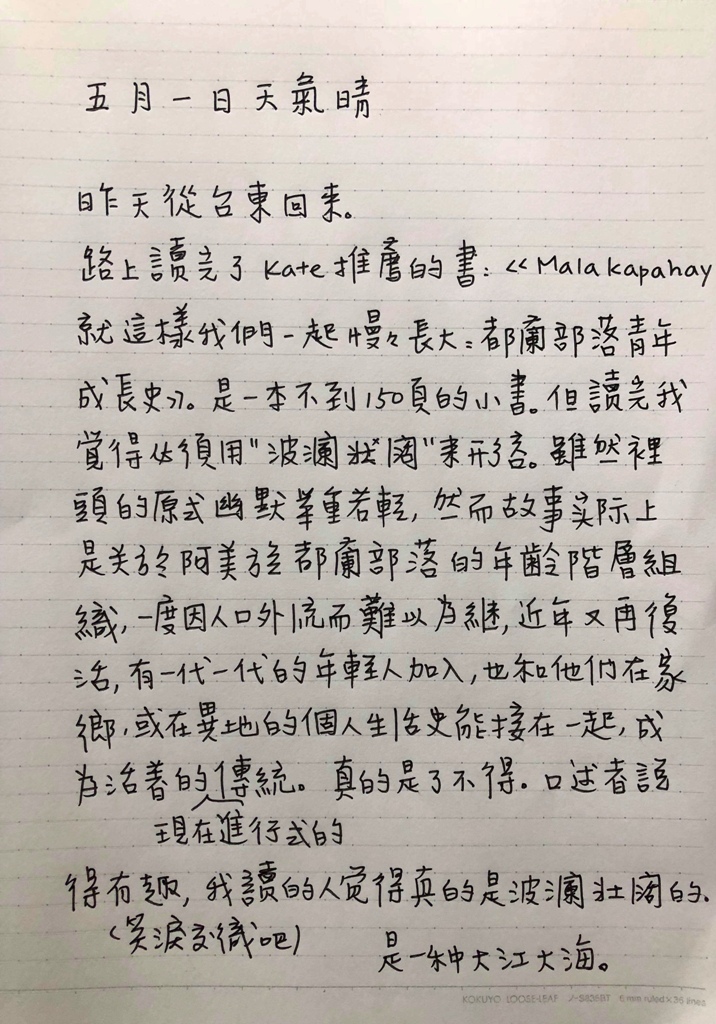 五月一日天氣晴
昨天從台東回來。
路上讀完了Kate推薦的書:《Malakapahay
就這樣我們一起慢々長大:都蘭部落青年
成長史》。是一本不到150頁的小書。但讀完我
覺得必須用"波瀾壯闊"來形容。雖然裡
頭的原式幽默舉重若輕,然而故事实际上
是关於阿美族都蘭部落的年齡階層組
織,一度因人口外流而難以為繼,近年又再復
活,有一代一代的年輕人加入,也和他们在家
鄉,或在異地的個人生活史能接在一起,成
为活著的傳統。真的是了不得。口述者說
現在進行式的
得有趣,我讀的人覚得真的是波瀾壯闊的.
(笑淚交織吧) 是一种大江大海。
KOKUYO LOOSE-LEAF ノ-S836BT 6 mm ruled×36 lines